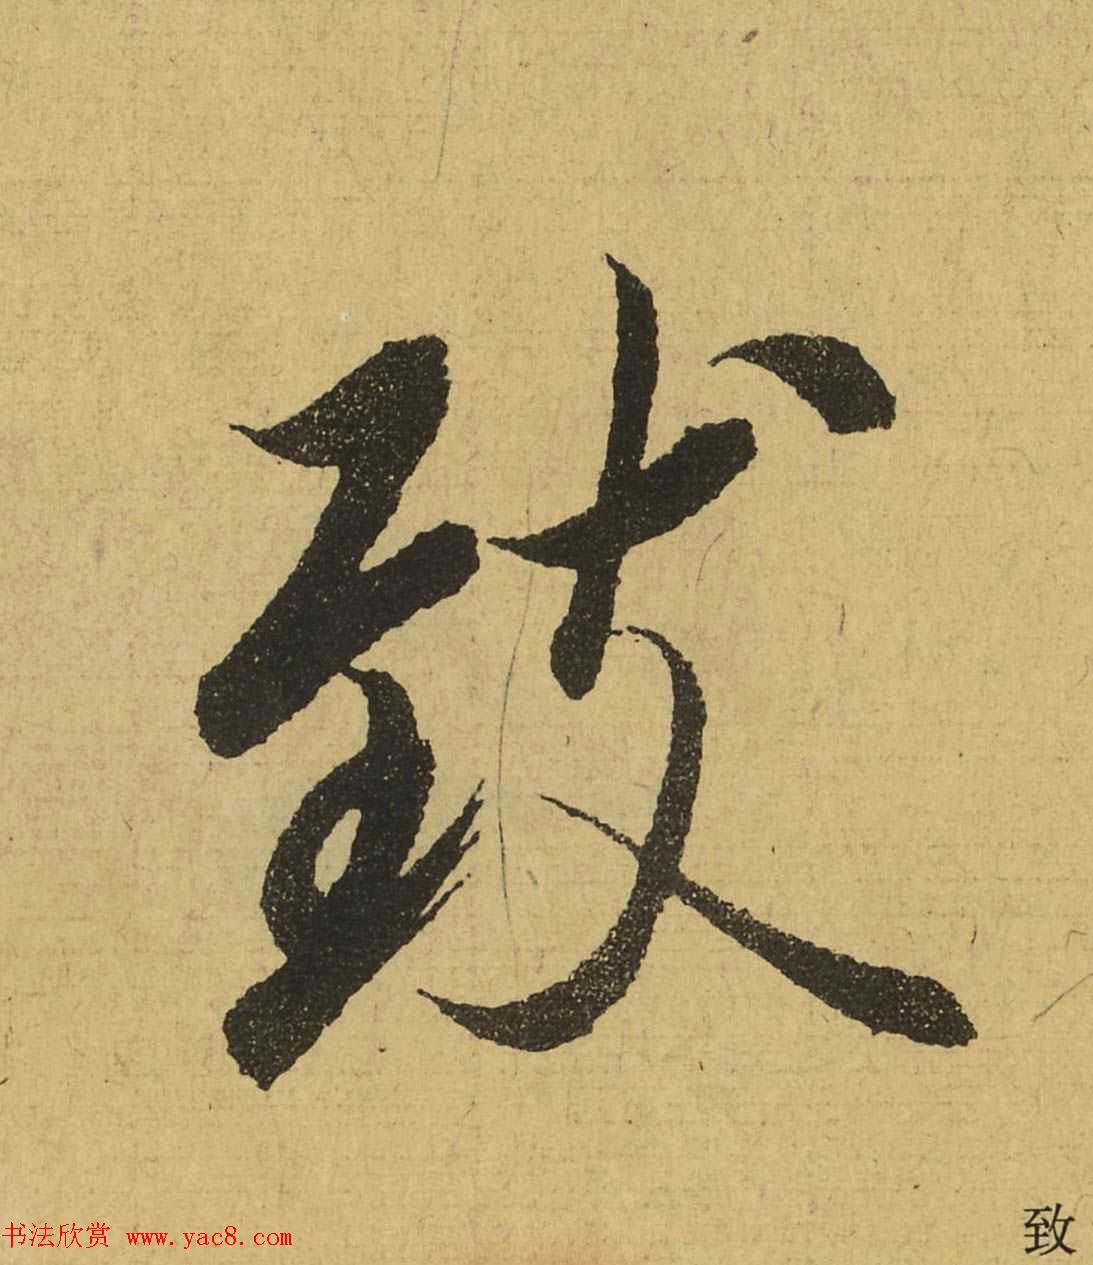 致
书法欣赏 www.yac8.com
致